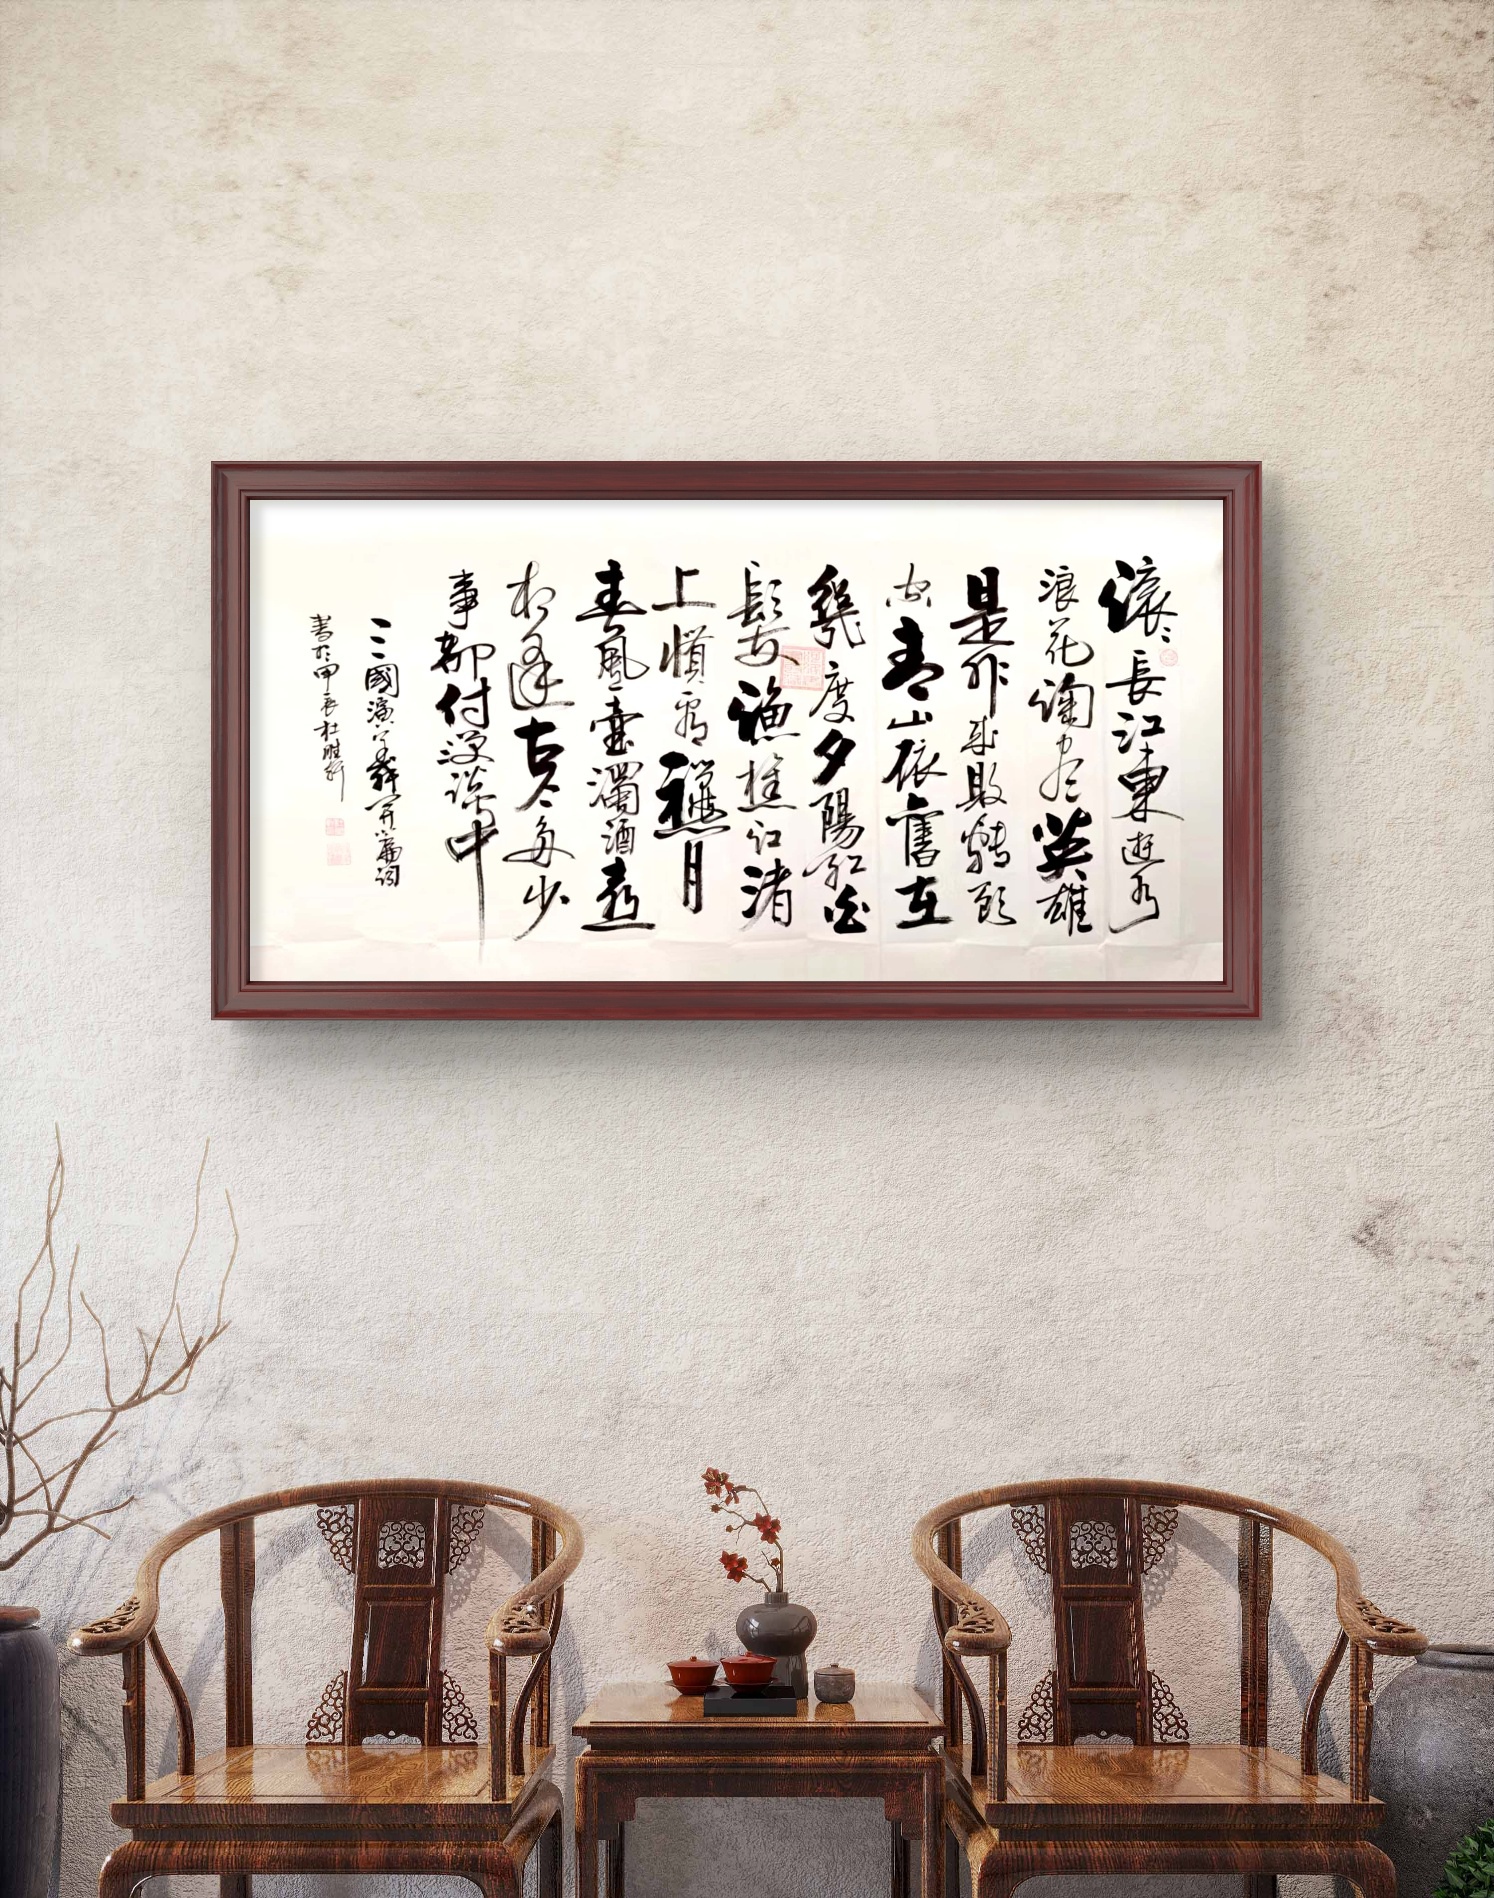 滚々長江東逝水
浪花淘盡英雄
是非成敗轉頭
空青山依舊在
幾度夕陽紅白
髮漁樵江渚
上慣看龝月
春風一壺濁酒喜
相逢古今多少
事都付談中
三國演義開篇詞
書於甲辰杜胜